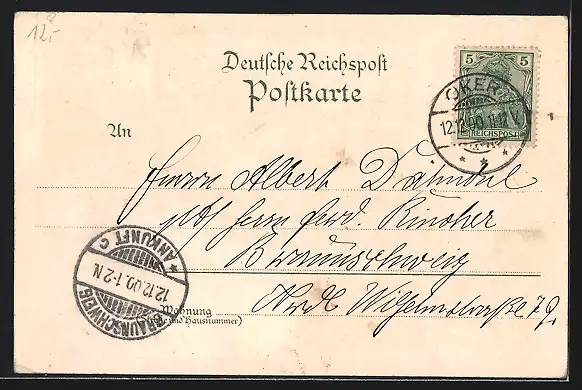 12.-
Deutsche Reichspost
Postkarte
5 5
REICHSPOST
OKER
12.12.00. 11-12 V.
An
Herrn Albert
Herrn Ferd.
Braunschweig
Wilhelmstrasse 79.
Wohnung
(Strasse und Hausnummer)
BRAUNSCHWEIG
12.12.00. 1-2 N
* ANKUNFT C.